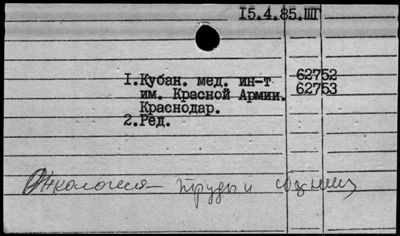 15.4.85.III
1.Кубан. мед. ин-т 62752
им. Красной Армии. 62753
Краснодар.
2.Ред.
Онкология труды и